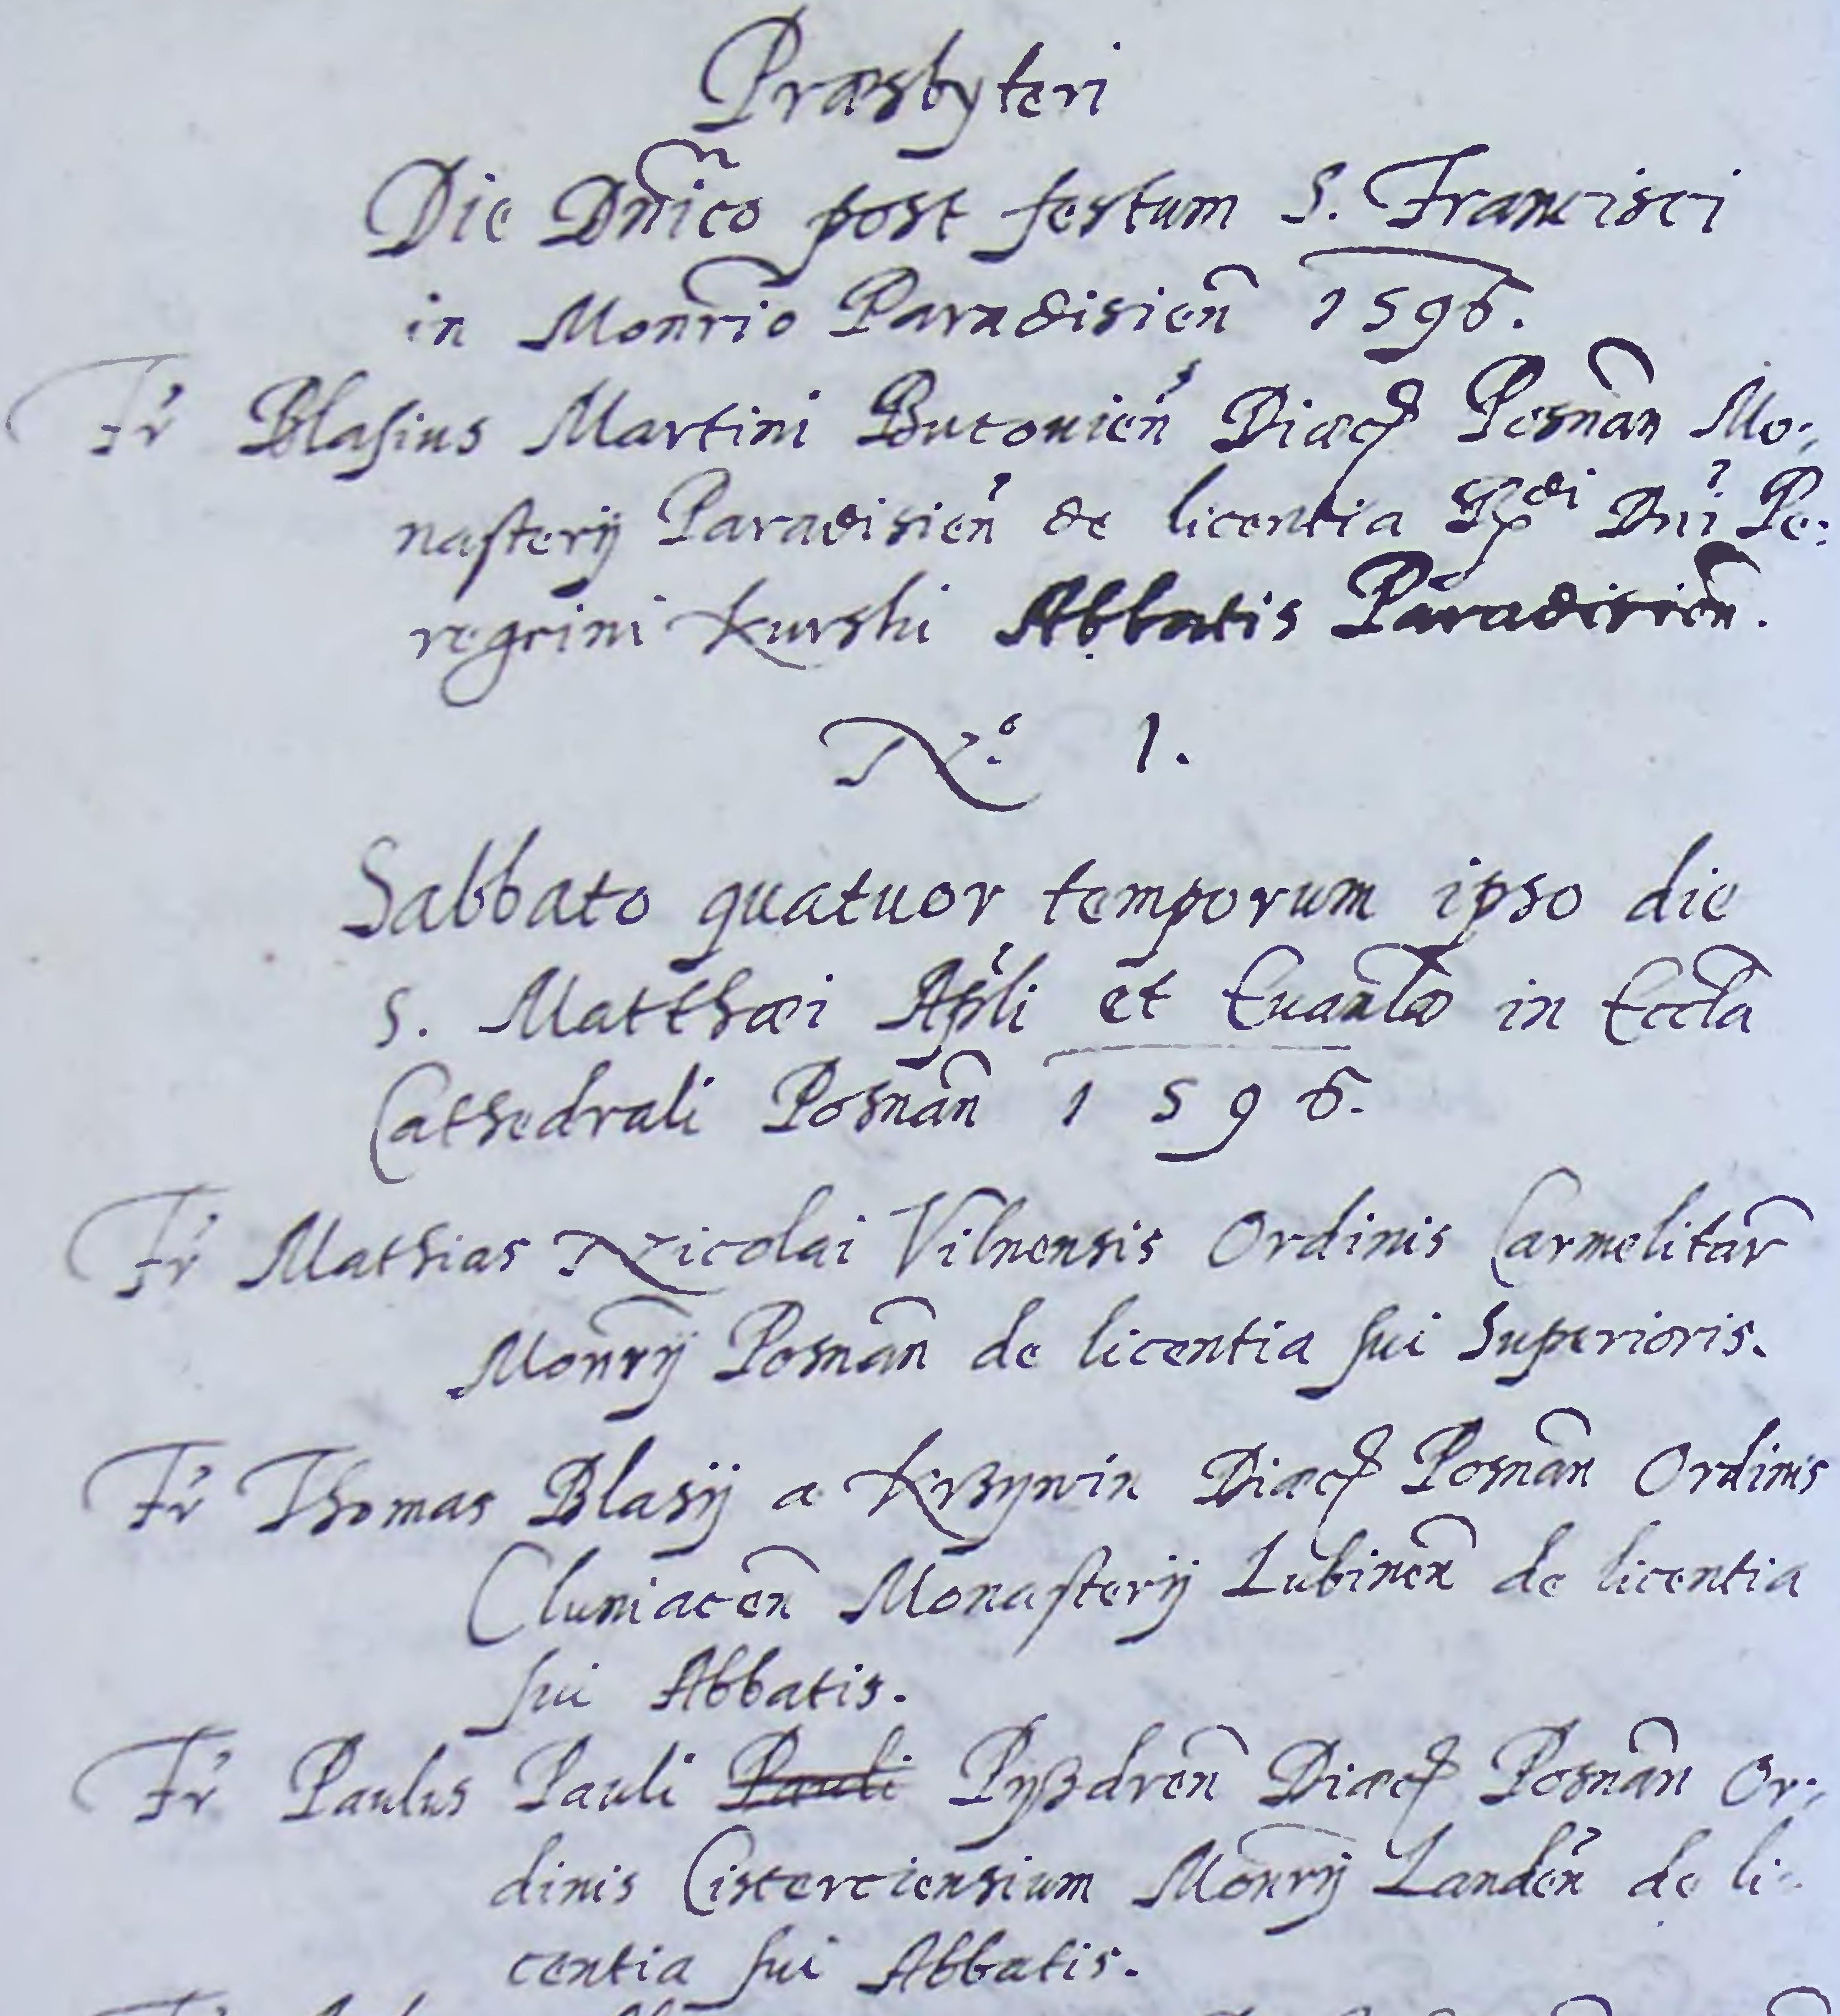 Præsbyteri
Die Dnĩco post festum S. Francisci
in Monrĩo Paradisieñ 1596.
Fr Blasius Martini Bucouieñ Diæc Posnañ Mo:
nasterij Paradisieñ de licentia Dñi Pe:
regrini Kurski Abbatis Paradisieñ.
N.º 1.
Sabbato quatuor temporum ipso die
S. Matthæi Apli et Euanlæ in Eccla
Cathedrali Posnañ 1596.
Fr Mathias Nicolai Vilnensis Ordinis Carmelitar̃
Monr̃ij Posnañ de licentia sui Superioris.
Fr Thomas Blasij a Krzywin Diæc Posnañ Ordinis
Cluniaceñ Monasterij Lubineñ de licentia
sui Abbatis.
Fr Paulus Pauli Pauli Pyzdreñ Diæc Posnañ Or:
dinis Cisterciensium Monrij Landeñ de li:
centia sui Abbatis.